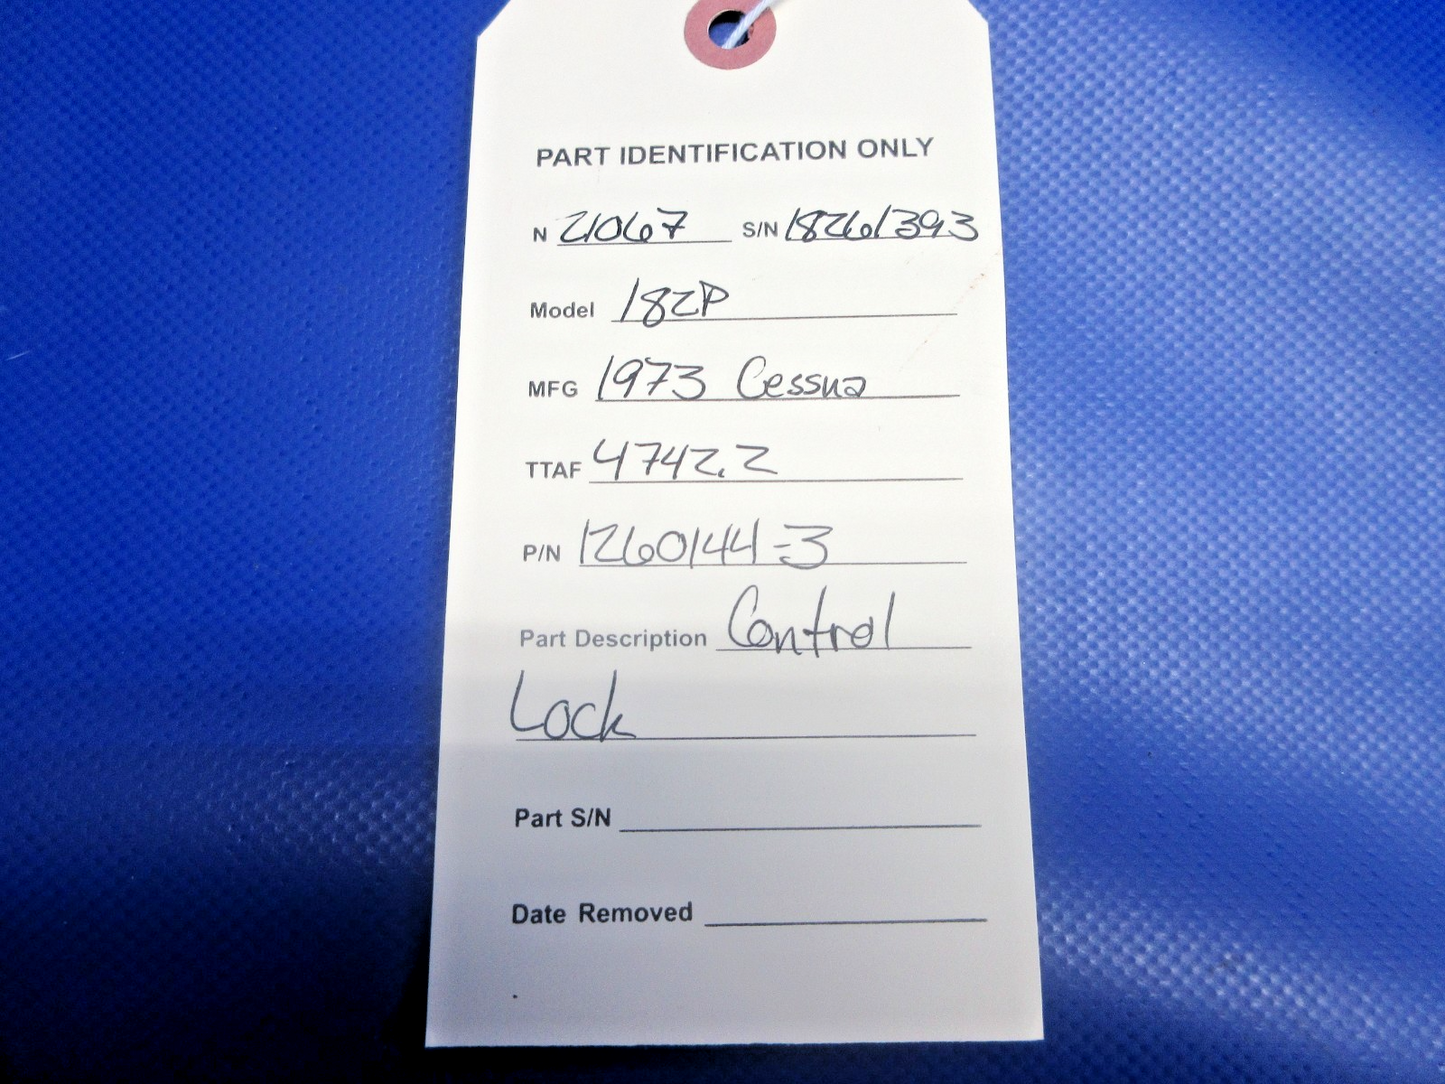 PART IDENTIFICATION ONLY
N 21067 S/N 18261393
Model 182P
MFG 1973 Cessna
TTAF 4742.2
P/N 1260144-3
Part Description Control
Lock
Part S/N
Date Removed